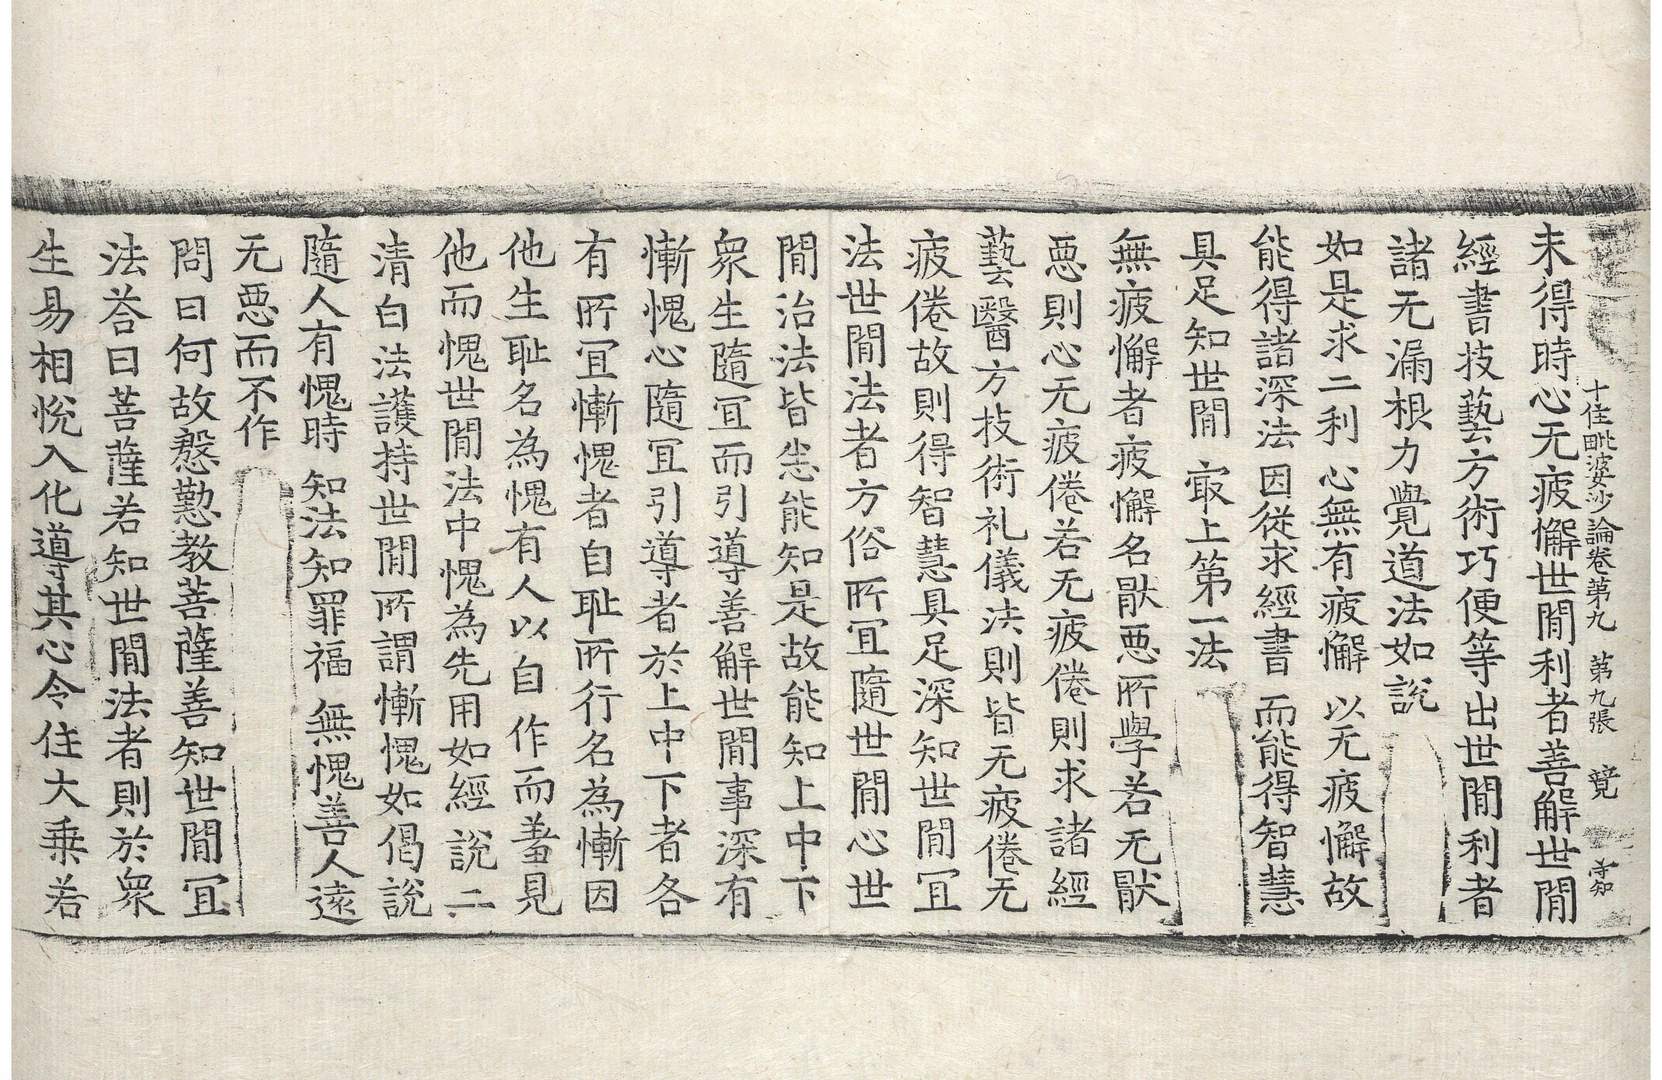 十住毗婆沙論卷第九　第九張　竟
未得時心无疲懈世間利者善解世間
經書技藝方術巧便等出世間利者
諸无漏根力覺道法如說
如是求二利　心無有疲懈　以无疲懈故
能得諸深法　因從求經書　而能得智慧
具足知世間　㝡上第一法
無疲懈者疲懈名猒惡所學若无猒
惡則心无疲倦若无疲倦則求諸經
藝醫方技術礼儀法則皆无疲倦无
疲倦故則得智慧具足深知世間冝
法世間法者方俗所冝隨世間心世
間治法皆悉能知是故能知上中下
衆生隨冝而引導善解世間事深有
慚愧心隨冝引導者於上中下者各
有所冝慚愧者自耻所行名為慚因
他生耻名為愧有人以自作而羞見
他而愧世間法中愧為先用如經說二
清白法護持世間所謂慚愧如偈說
隨人有愧時　知法知罪福　無愧善人遠
无惡而不作
問曰何故慇懃教菩薩善知世間冝
法荅曰菩薩若知世間法者則於衆
生易相悅入化導其心令住大乗若